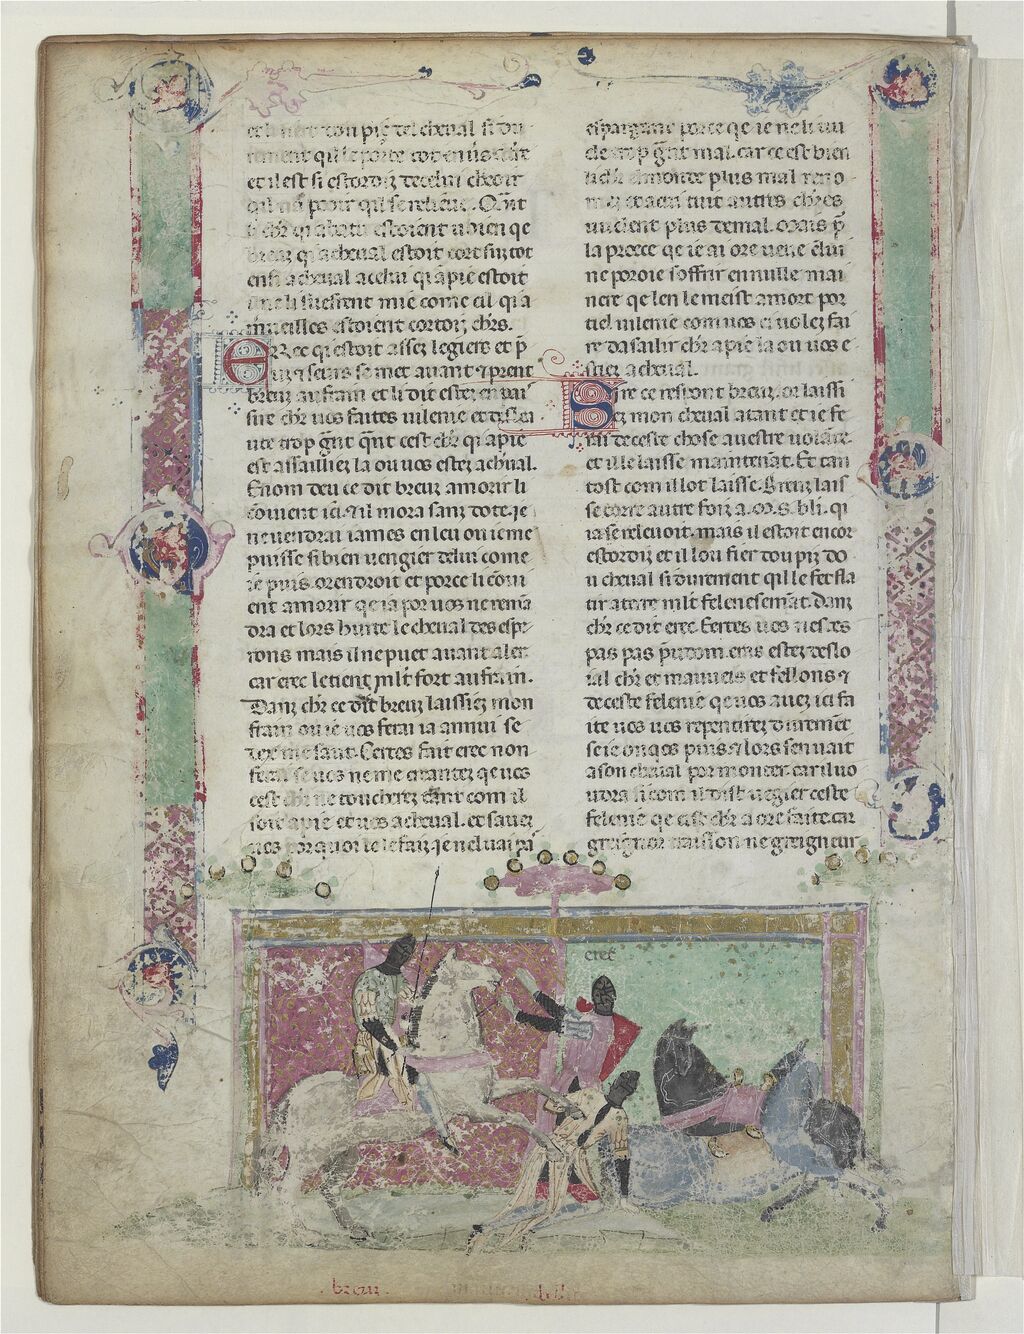 rement qui le porte
et il est si estordiz de celui cheoir
qil na pooir qil se relieve. Qãnt
breuz q̃ a cheual estoit
ensi a cheual a celui qi a pie estoit
mie come cil qi a
mũeilles estoient cortoiz chrs.
ERec qi estoit assez legiers et p̃
se met auant ⁊ prent
breuz au frain et li dit estez en pai
sire chr uos faites uilenie
trop g̃nt q̃nt cest chr qi a pie
est assailliez la ou uos estez a cheual.
Enom deu ce dit breuz a morir li
couient ici. Sil mora sanz dote. ie
ne uendrai iames en leu ou ie me
puisse si bien uengier de lui come
ie puis orendroit et por ce li coui
ent a morir qe ia por uos ne remã
dra et lors hurte le cheual des espe
rons mais il ne puet auant aler
car erec le tient ml̃t fort au frain.
Danz chr ce dit breuz laissiez mon
frain ou ie uos ferai ia annui se
dex me saut. Certes fait erec non
ferai se uos ne me creantez qe uos
cest chr ne toucherez tãnt com il
soit a pie et uos a cheual. et sauez
uos por quoi ie le faiz ie nel uai pas
espargnant por ce qe ie ne li uui
de trop g̃nt mal. car ce est bien
li chr el monde plus mal
tuit autres chres
uuelent plus de mal. Mais p̃
la proece qe ie ai ore ueue
ne poroie soffrir en nulle mai
nere qe len le meist a mort por
tiel uilenie com uos ci uolez fai
re dasailir chr a pie la ou uos e
stiez a cheual.
Sire ce respont breuz. or laissi
ez mon cheual atant et ie fe
rai de ceste chose a uestre uolãte.
et il le laisse maintenãt. Et tan
tost com il lot laisse. Breuz lais
se corre autre foiz a. M. S. bli. qi
ia se releuoit. mais il estoit encor
estordiz et il lou fiert dou piz do
u cheual si durement qil le fet fla
tir a terre ml̃t felenesemãt. Danz
chr ce dit erec. Certes uos nestes
pas pas pudom. ains estez deslo
ial chr et mauueis et fellons ⁊
de ceste felenie qe uos auez ici fa
ite uos uos repentirez durement
se ie onqes puis ⁊ lors sen uait
a son cheual por monter. car il uo
udra si com il dist uẽgier ceste
felenie qe cist chr a ore faite. car
greignor traison ne greigneur
erec
breuz